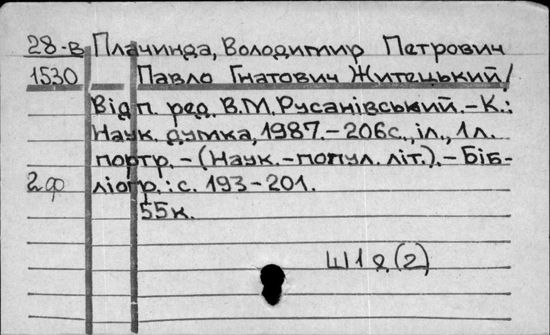 28-В Плачинда, Володимир Петрович
1530 Павло Гнатович Житецький/
Відп. ред. В.М. Русанівський. – К.:
Наук. думка, 1987. – 206с., іл., 1 л.
портр. – (Наук.-попул. літ.). – Біб-
2ф ліогр.: с. 193-201.
55к.
Ш1я(2)